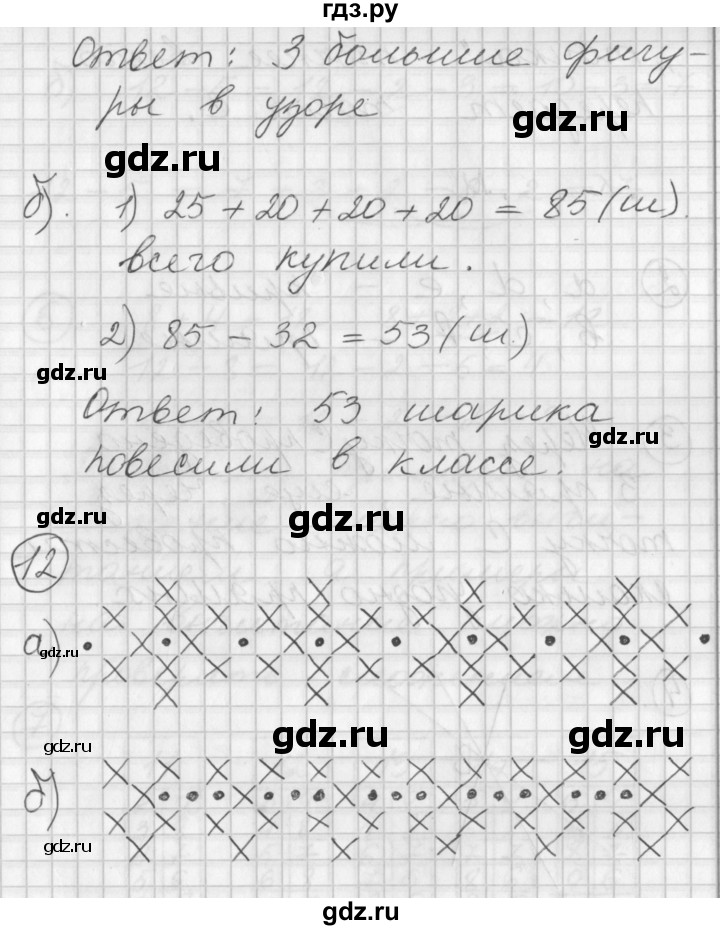 гдз.ру
Ответ: 3 большие фигу-
ры в узоре
gdz.ru
gdz.ru
б). 1) 25 + 20 + 20 + 20 = 85 (ш).
всего купили.
2) 85 - 32 = 53 (ш.)
gdz.ru
Ответ: 53 шарика
gdz.ru
повесили в классе.
gdz.ru
gdz.ru
12
а)
gdz.ru
gdz.ru
gdz.ru
gdz.ru
б)
gdz.ru
gdz.ru